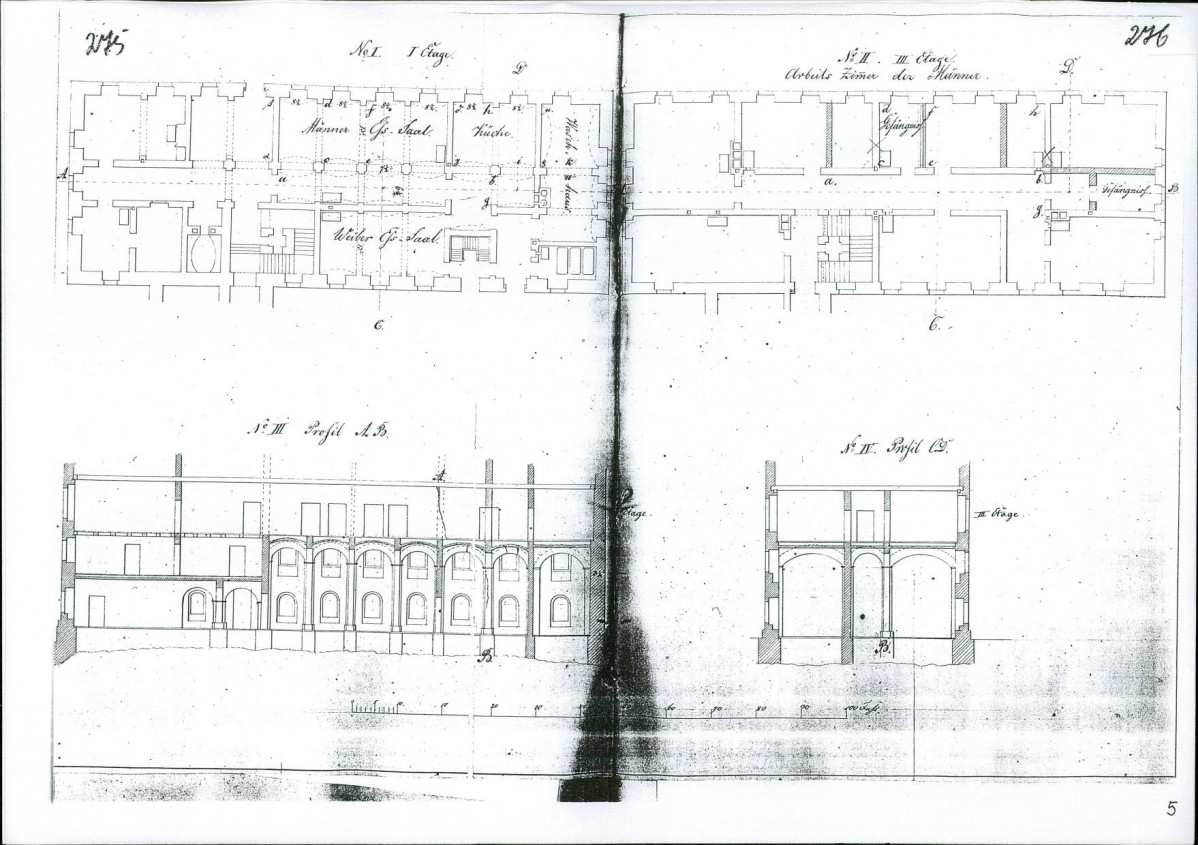 275
276
No I. I Etage.
D
No II. III Etage.
Arbeits Zimer der Männer.
D.
Männer Eß-Saal.
Küche.
Wasch-haus.
Weiber Eß-Saal.
C.
A.
a
b
g
d
f
h
Gefängniß
a.
c
e
b
g.
Gefängniß.
B
C.
No III Profil A.B.
No IV. Profil C.D.
A.
B.
Etage.
III Etage.
B.
10 10 20 30 60 70 80 90 100 Fuß
5